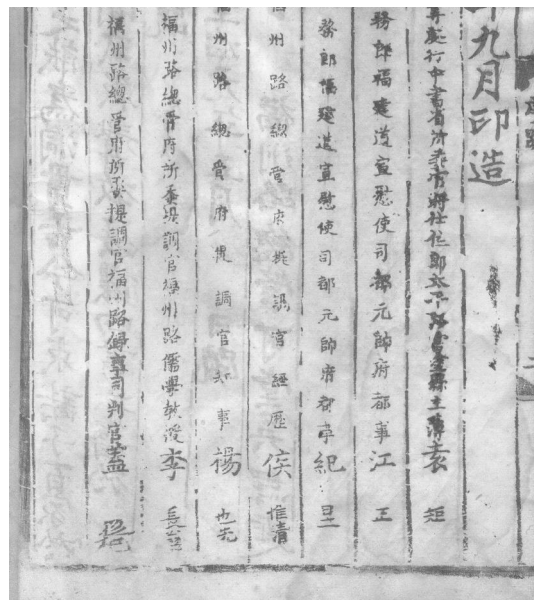 年九月印造
等處行中書省所委官將仕佐郎太平路蕪湖縣主簿袁 矩
務郎福建道宣慰使司都元帥府都事江 正
務郎福建道宣慰使司都元帥府都事紀 昱
福州路總管府提調官經歷侯 惟清
福州路總管府提調官知事楊 也先
福州路總管府所委提調官福州路儒學教授李 長
福州路總管府所委提調官福州路錄事司判官蓋